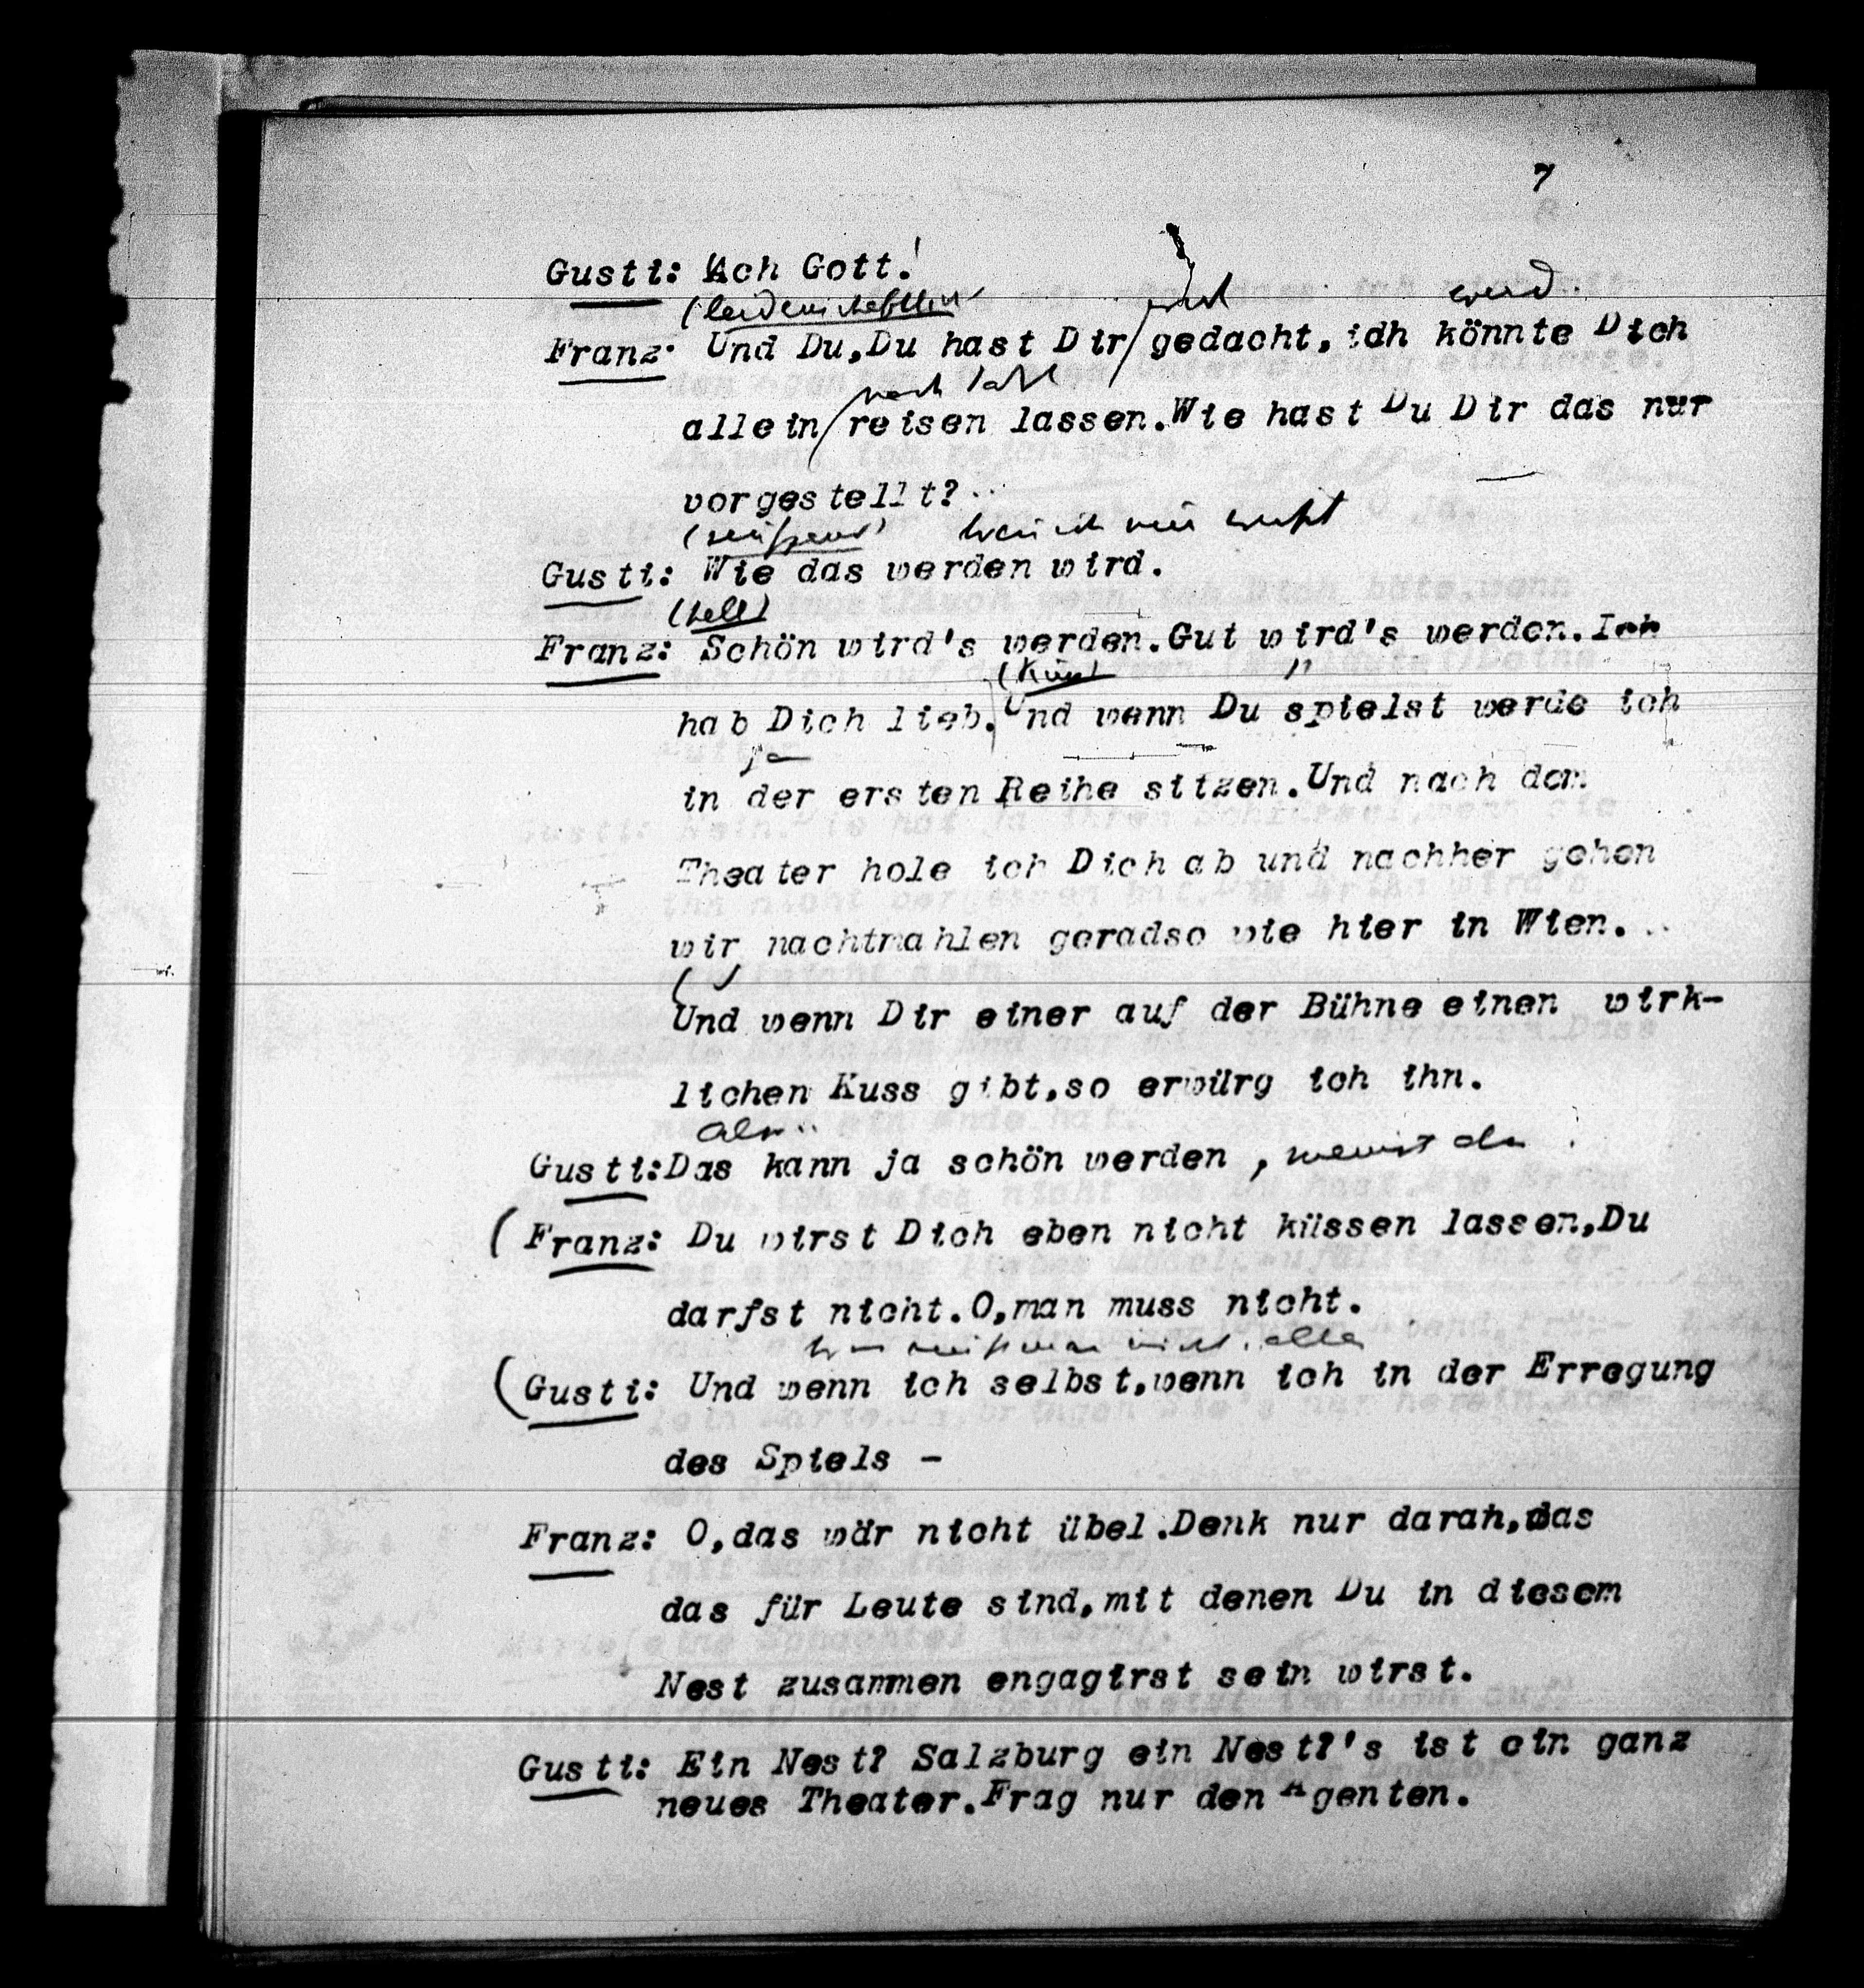 7
Gusti: Ach Gott!
(leidenschaftlich
Franz: Und Du,Du hast Dir/gedacht,idh könnte Dich
nach
allein/reisen lassen.Wie hast Du Dir das nur
vorgestellt?..
(seufzend)
Gusti: Wie das werden wird.
(hell)
Franz: Schön wird's werden.Gut wird's werden.Ich
hab Dich lieb.Und wenn Du spielst werde ich
ja
in der ersten Reihe sitzen.Und nach dem
Theater hole ich Dich ab und nachher gehen
wir nachtmahlen geradso wie hier in Wien...
Und wenn Dir einer auf der Bühne einen wirk-
lichen Kuss gibt,so erwürg ich ihn.
Gusti:Das kann ja schön werden ,
(Franz: Du wirst Dich eben nicht küssen lassen,Du
darfst nicht.O,man muss nicht.
(Gusti: Und wenn ich selbst,wenn ich in der Erregung
des Spiels -
Franz: O,das wär nicht übel.Denk nur daran,was
das für Leute sind,mit denen Du in diesem
Nest zusammen engagirst sein wirst.
Gusti: Ein Nest? Salzburg ein Nest?'s ist ein ganz
neues Theater.Frag nur den Agenten.